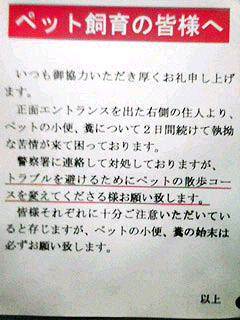 ペット飼育の皆様へ
いつも御協力いただき厚くお礼申し上げ
ます。
正面エントランスを出た右側の住人より、
ペットの小便、糞について２日間続けて執拗
な苦情が来て困っております。
警察署に連絡して対処しておりますが、
トラブルを避けるためにペットの散歩コー
スを変えてくださる様お願い致します。
皆様それぞれに十分ご注意いただいてい
ると存じますが、ペットの小便、糞の始末は
必ずお願い致します。
以上